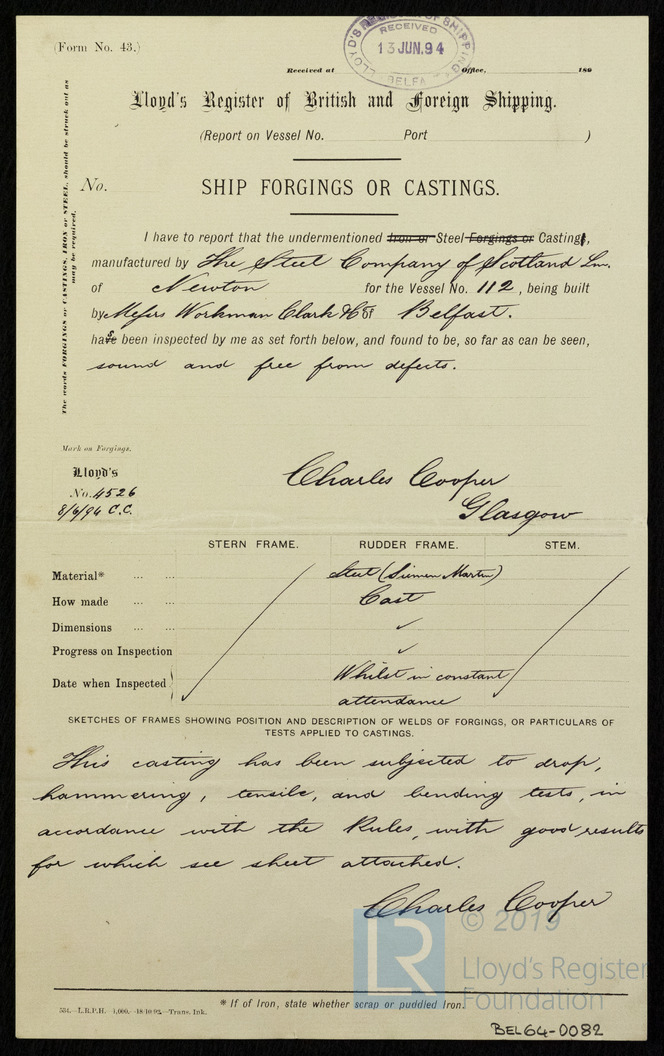 (Form No. 43.)
LLOYD'S REGISTER OF SHIPPING
RECEIVED
13 JUN. 94
BELFA
Received at Office, 189
Lloyd's Register of British and Foreign Shipping.
(Report on Vessel No. Port )
No.
SHIP FORGINGS OR CASTINGS.
The words FORGINGS or CASTINGS, IRON or STEEL, should be struck out as
may be required.
I have to report that the undermentioned Iron or Steel Forgings or Casting,
manufactured by The Steel Company of Scotland Lm.
of Newton for the Vessel No. 112, being built
by Messrs Workman Clark & Co of Belfast.
has been inspected by me as set forth below, and found to be, so far as can be seen,
sound and free from defects.
Mark on Forgings.
Lloyd's
No. 4526
8/6/94 C.C.
Charles Cooper
Glasgow
STERN FRAME. RUDDER FRAME. STEM.
Material* ... ... Steel (Siemen Martin)
How made ... ... Cast
Dimensions ... ... ✓
Progress on Inspection ✓
Date when Inspected Whilst in constant
attendance
SKETCHES OF FRAMES SHOWING POSITION AND DESCRIPTION OF WELDS OF FORGINGS, OR PARTICULARS OF
TESTS APPLIED TO CASTINGS.
This casting has been subjected to drop,
hammering, tensile, and bending tests, in
accordance with the Rules, with good results
for which see sheet attached.
Charles Cooper
LR
© 2019
Lloyd's Register
Foundation
* If of Iron, state whether scrap or puddled Iron.
554.—L.R.P.H. 1,000.—18·10·92.—Trans. Ink.
BEL64-0082